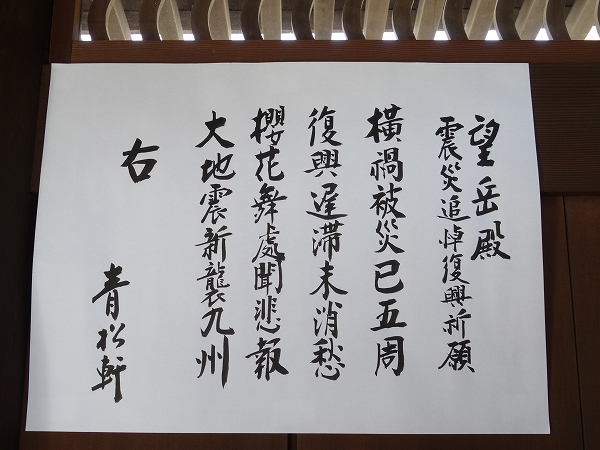 望岳殿
震災追悼復興祈願
横禍被災已五周
復興遅滞未消愁
櫻花舞處聞悲報
大地震新襲九州
右
青松軒